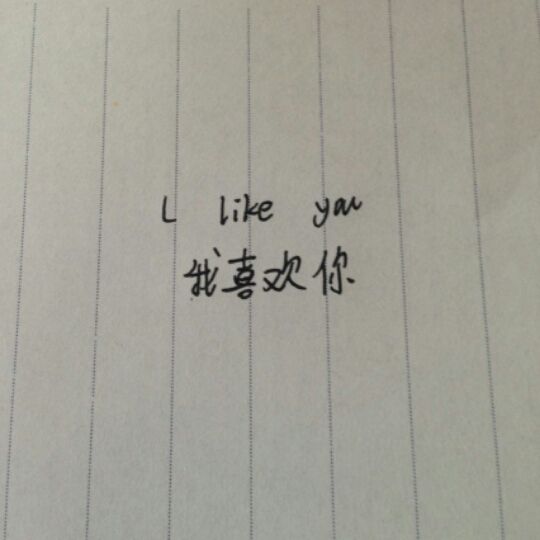 I like you
我喜欢你